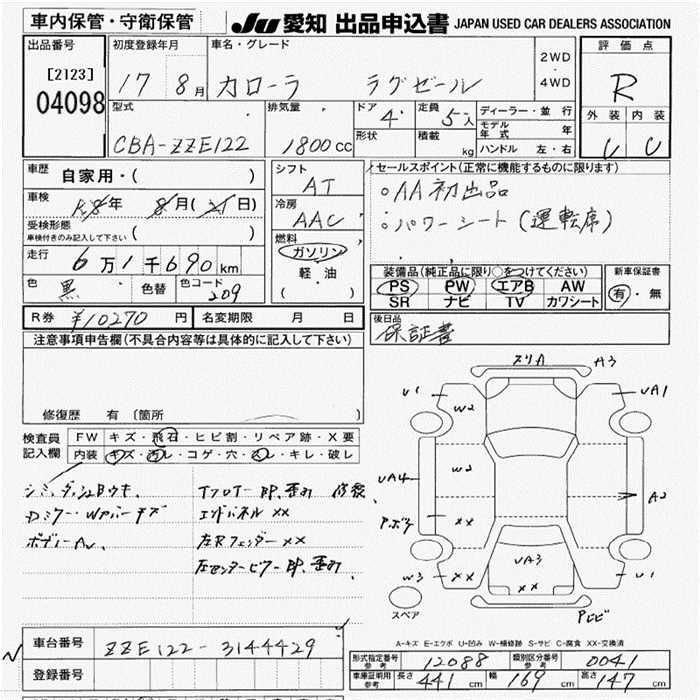 車内保管・守衛保管 JU 愛知 出品申込書 JAPAN USED CAR DEALERS ASSOCIATION
出品番号 初度登録年月 車名・グレード 2WD 評価点
[2123] 17 8月 カローラ ラグゼール 4WD R
04098
型式 排気量 ドア 4 定員 5人 ディーラー・並行 外装 内装
CBA-ZZE122 1800cc 形状 積載 kg モデル年式 年 U C
ハンドル 左・右
車歴 自家用・( ) シフト AT セールスポイント(正常に機能するものに限ります)
車検 年 8月( 日) 冷房 AAC ○AA初出品
受検形態 車検付きのみ記入して下さい ( ) 燃料 ○パワーシート(運転席)
走行 6万1千690km ガソリン 軽・油 ( ) 装備品(純正品に限り○をつけてください) 新車保証書
色 黒 色替 色コード 209 PS PW エアB AW 有・無
SR ナビ TV カワシート
R券 ¥10270円 名変期限 月 日 後日品
注意事項申告欄(不具合内容等は具体的に記入して下さい) 保証書
修復歴 有 〔箇所 〕
検査員記入欄 FW キズ・飛石・ヒビ割・リペア跡・X要
内装 キズ・汚レ・コゲ・穴・スレ・キレ・破レ
シミ、ダッシュBウキ、 Tフロアー 押、歪み 修複
Dミラー・WPバーキズ エンドパネル XX
ボディーAU、 左Rフェンダー XX
左センターピラー 押、歪み
ズリA A3
U1 W2 UA1
UA4 W2 A2
P.ボチ XX
UA3
W3 XX XX U1
スペア Pヒビ
A-キズ E-エクボ U-凹み W-補修跡 S-サビ C-腐食 XX-交換済
車台番号 ZZE122-3144429
登録番号
型式指定番号 参考 12088 類別区分番号 参考 0041
車庫証明用 参考 長さ 441cm 幅 169cm 高さ 147cm